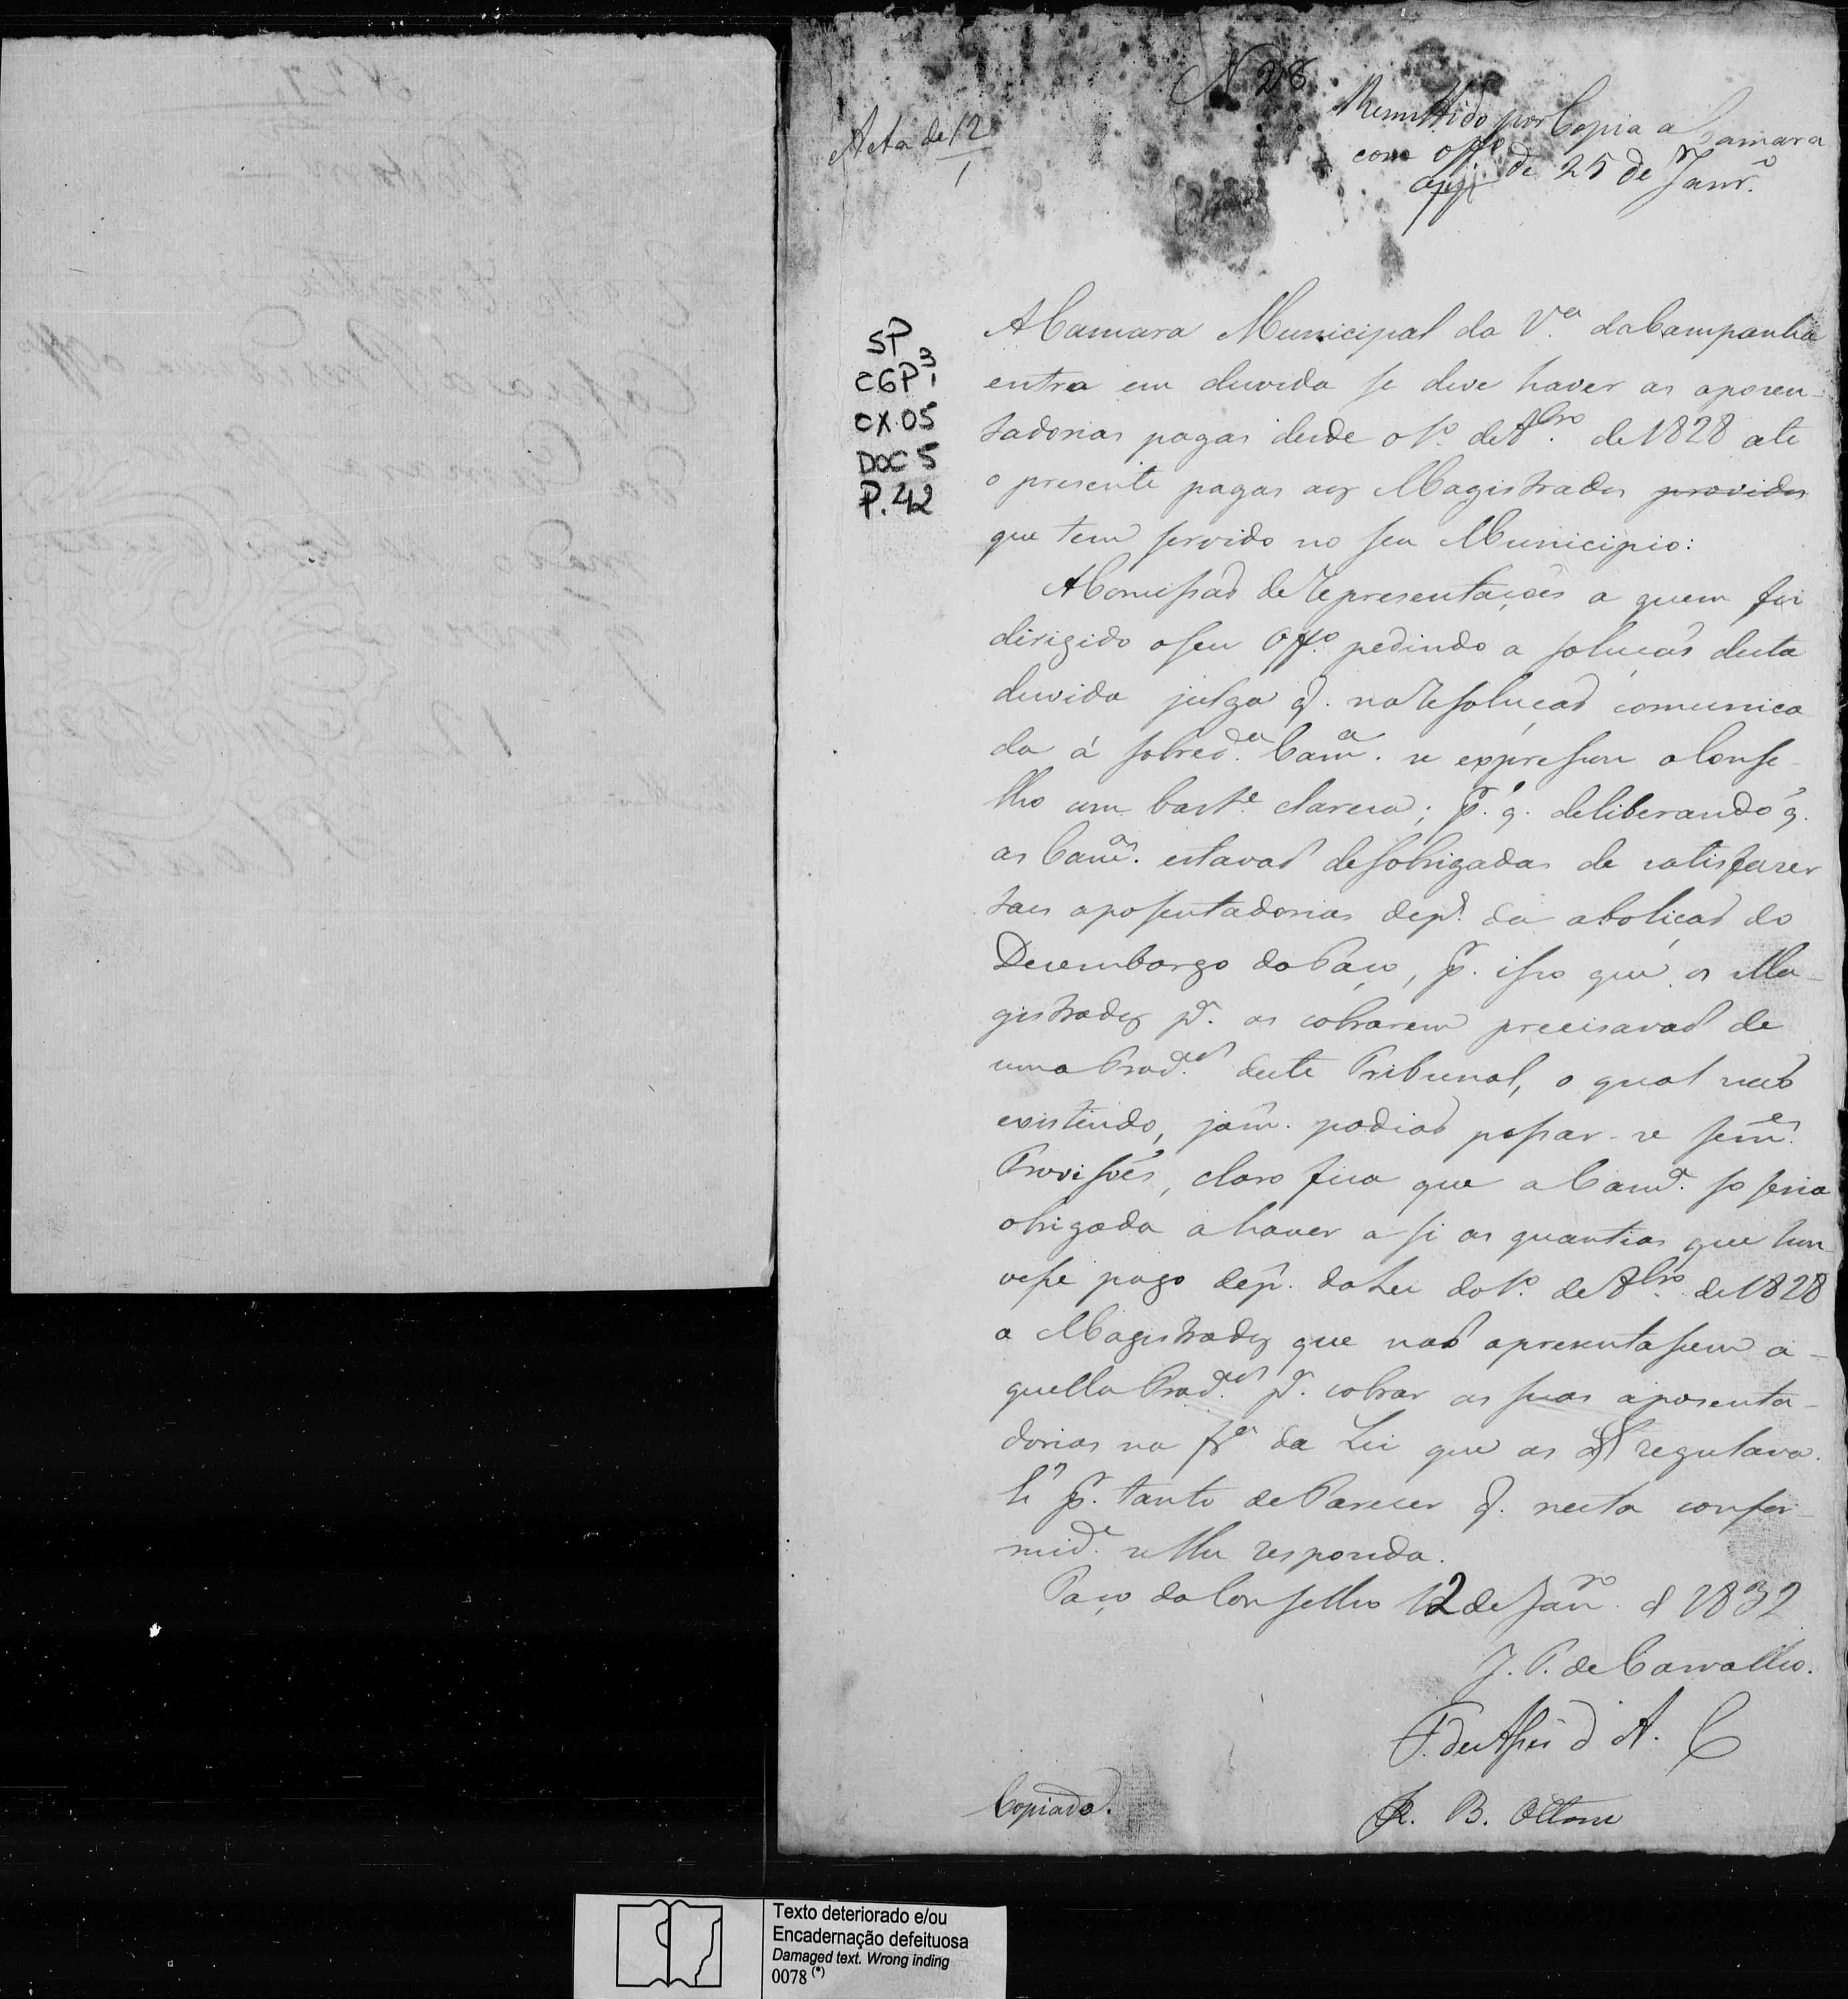 N 28
Acta de 12
1
Remettido por Copia a Camara
com offo de 25 de Janr.o
SP
CGP 3
1
CX.05
DOC 5
P.42
A Camara Municipal da V.a da Campanha
entra em duvida se deve haver as aposen-
tadorias pagas desde o 1.o de 8bro de 1828 ate
o presente pagas aos Magistrados providos
que tem servido no seu Municipio:
A Comissaõ de representações a quem foi
dirigido o seu Off.o pedindo a soluçaõ desta
duvida julga q. na resoluçaõ comunica
da á sobred.a Cam.a se expressou o Conse-
lho com bast.e clareza; p.r q. deliberando q.
as Cam.as estavaõ desobrigadas de satisfazer
taes aposentadorias dep.s da aboliçaõ do
Desembargo do Paço, p.r isso que os Ma-
gistrados p.a as cobrarem precisavaõ de
uma Prov.aõ deste Tribunal, o qual naõ
existindo, jám. podiaõ passar-se sem.e
Provisões, claro fica que a Cam.a so seria
obrigada a haver a si as quantias que hou-
vesse pago dep.s da Lei do 1.o de 8bro de 1828
a Magistrados que naõ apresentassem a-
quella Prov.aõ p.a cobrar as suas aposenta-
dorias na fr.a da Lei que as regulava.
É p.r tanto de Parecer q. nesta confor-
mid.e se lhe responda.
Paço do Conselho 12 de Jan.ro d 1832
J. P. de Carvalho.
F. de Assis d A. C
B. Ottoni
Copiado.
Texto deteriorado e/ou
Encadernação defeituosa
Damaged text. Wrong inding
0078 (*)